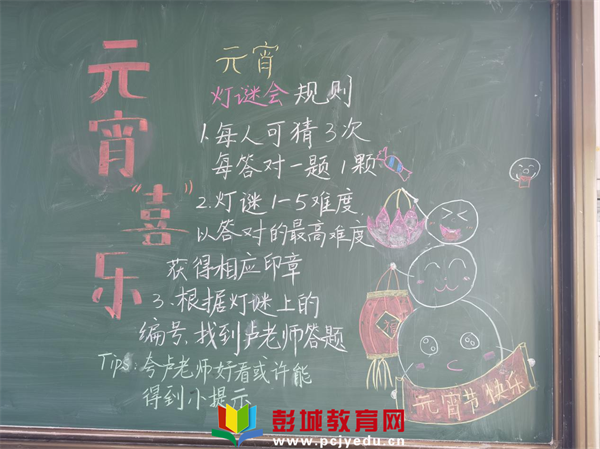 元宵
"喜"
乐
元宵
灯谜会 规则
1.每人可猜3次
每答对一题1颗
2.灯谜1-5难度
以答对的最高难度
获得相应印章
3.根据灯谜上的
编号,找到卢老师答题
Tips:夸卢老师好看或许能
得到小提示
福
元宵节快乐
彭城教育网
www.pcjyedu.cn